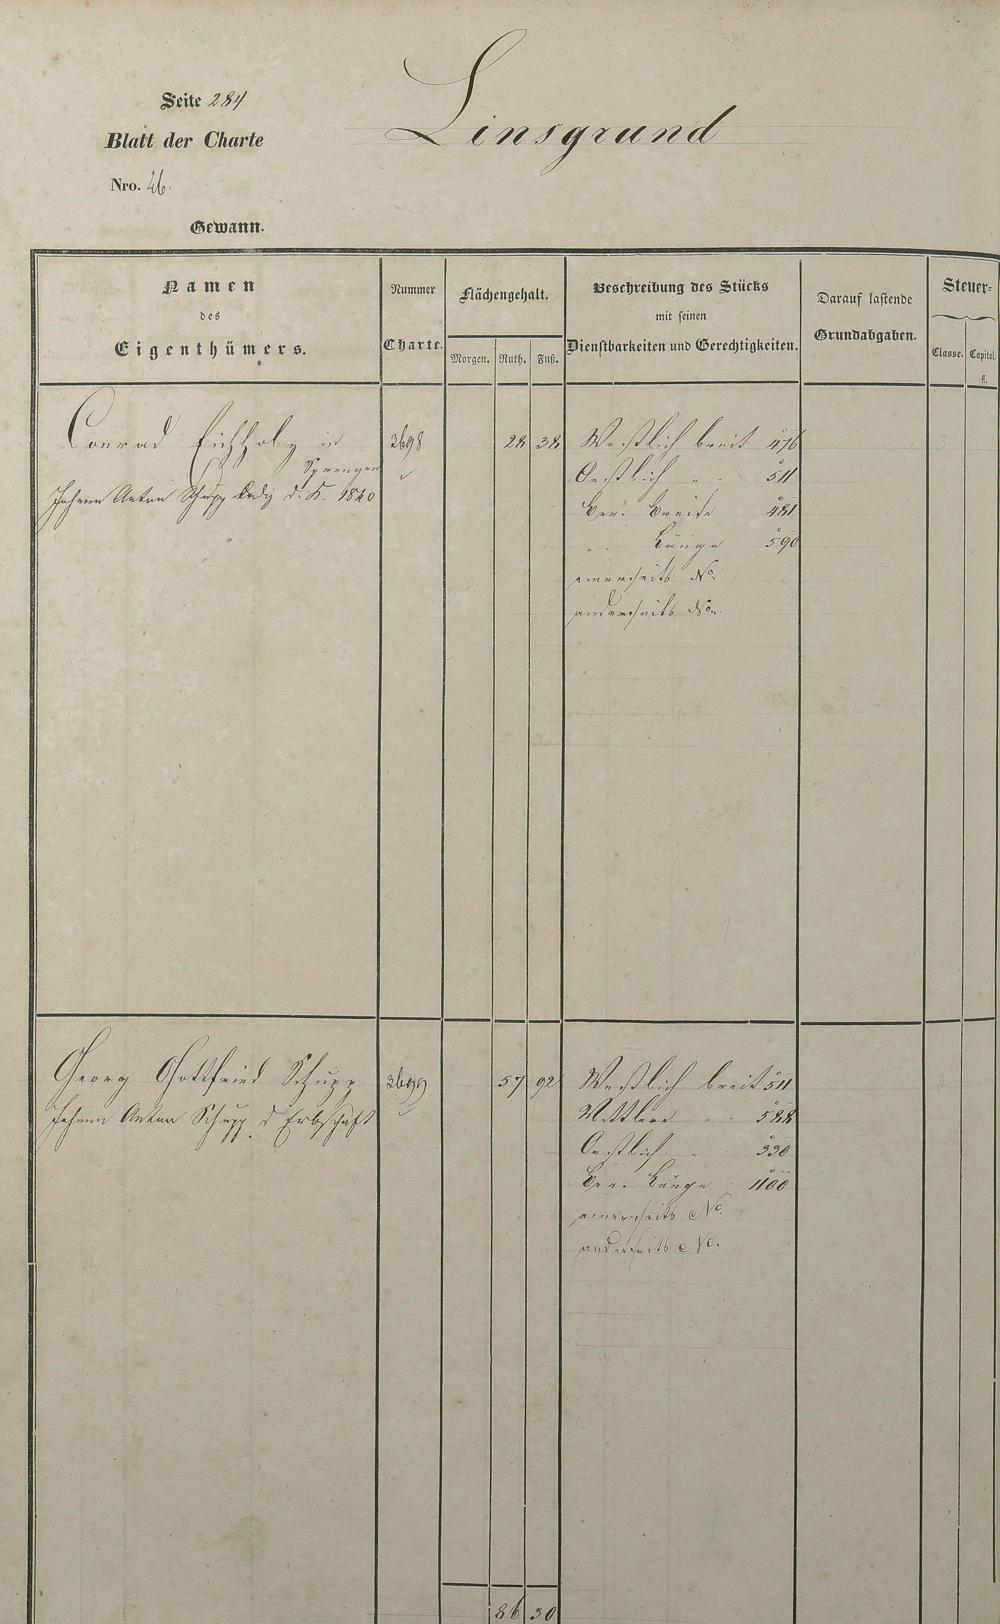 Seite 284
Linsgrund
Blatt der Charte
Nro. 46.
Gewann.
Namen
des
Eigenthümers.
Nummer
Charte.
Flächengehalt.
Morgen. Ruth. Fuß.
Beschreibung des Stücks
mit seinen
Dienstbarkeiten und Gerechtigkeiten.
Darauf lastende
Grundabgaben.
Steuer-
Classe. Capital.
fl.
Conrad Eichholz in 3698 28 38 Westlich breit 476 3
Sprengen
Oestlich " " 511
Johann Anton Schupp d. K. 1840
Cor. Breite 481
" Länge 590
einerseits No.
anderseits No.
Georg Gottfried Schupp 3699 57 92 Westlich breit 511 4
Johann Anton Schupp d Erbschaft
Mittlere " " 588
Oestlich " 330
Cor. Länge 1100
einerseits No.
anderseits No.
86 30